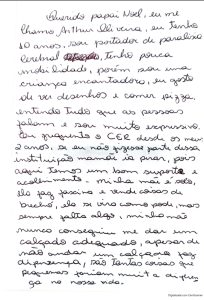 Querido papai Noel, eu me
chamo Arthur Oliveira, eu tenho
10 anos, sou portador de paralisia
cerebral, tenho pouca
mobilidade, porém sou uma
criança encantadora, eu gosto
de ver desenhos e comer pizza,
entendo tudo que as pessoas
falam e sou muito expressivo.
Eu frequento o CER desde os meus
2 anos, se eu não fizesse parte dessa
instituição mamãe ia pirar, pois
aqui temos um bom suporte e
acolhimento, minha mãe é solo,
ela faz faxina e vende coisas de
brechó, ela se vira como pode, mas
sempre falta algo, minha mãe
nunca conseguiu me dar um
calçado adequado, apesar de
não andar um calçado faz
diferença, são tantas coisas que
pequenas fariam muita diferen
ça na nossa vida.
Digitalizado com CamScanner